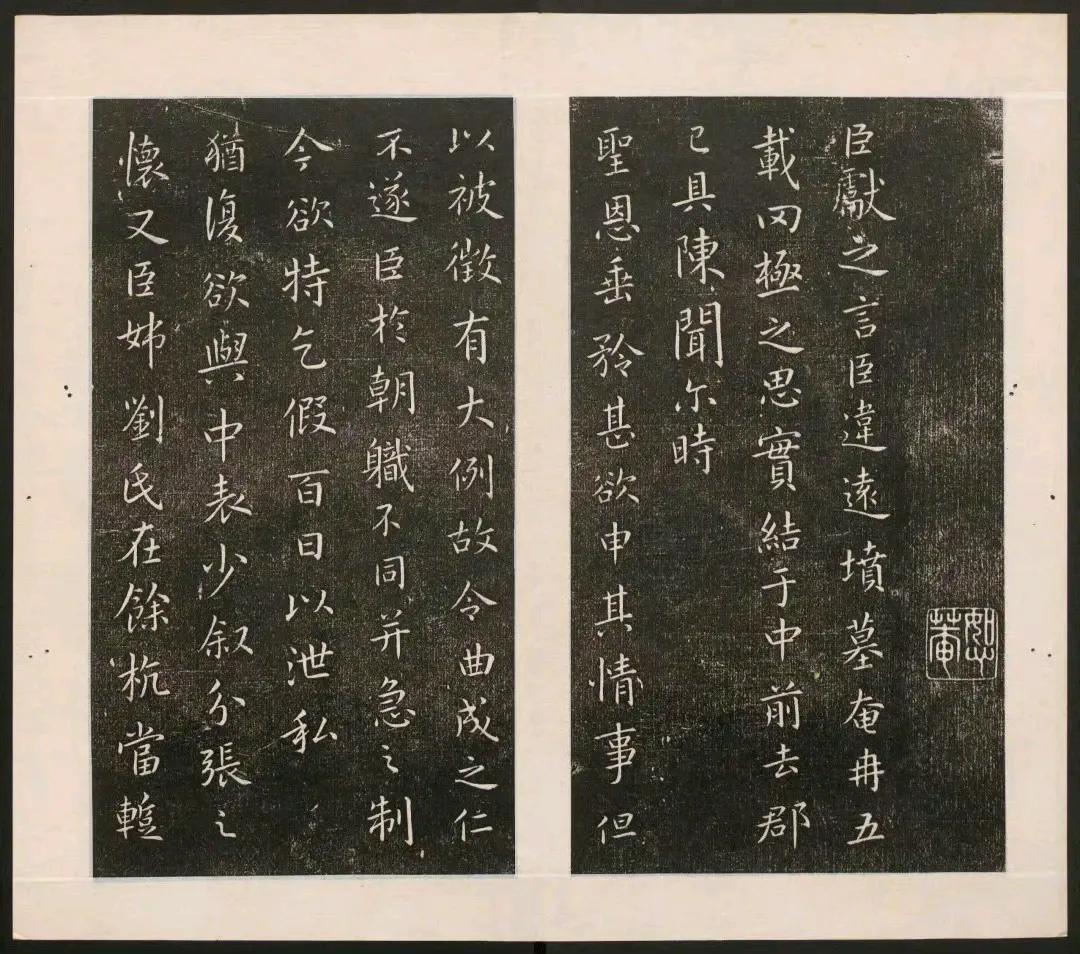 臣獻之言臣違遠墳墓奄冉五
載罔極之思實結于中前去郡
已具陳聞尓時
聖恩垂矜甚欲申其情事但
以被徵有大例故令曲成之仁
不遂臣於朝職不同并急之制
今欲特乞假百日以泄私
猶復欲與中表少叙分張之
懷又臣姊劉氏在餘杭當蹔
恕菴